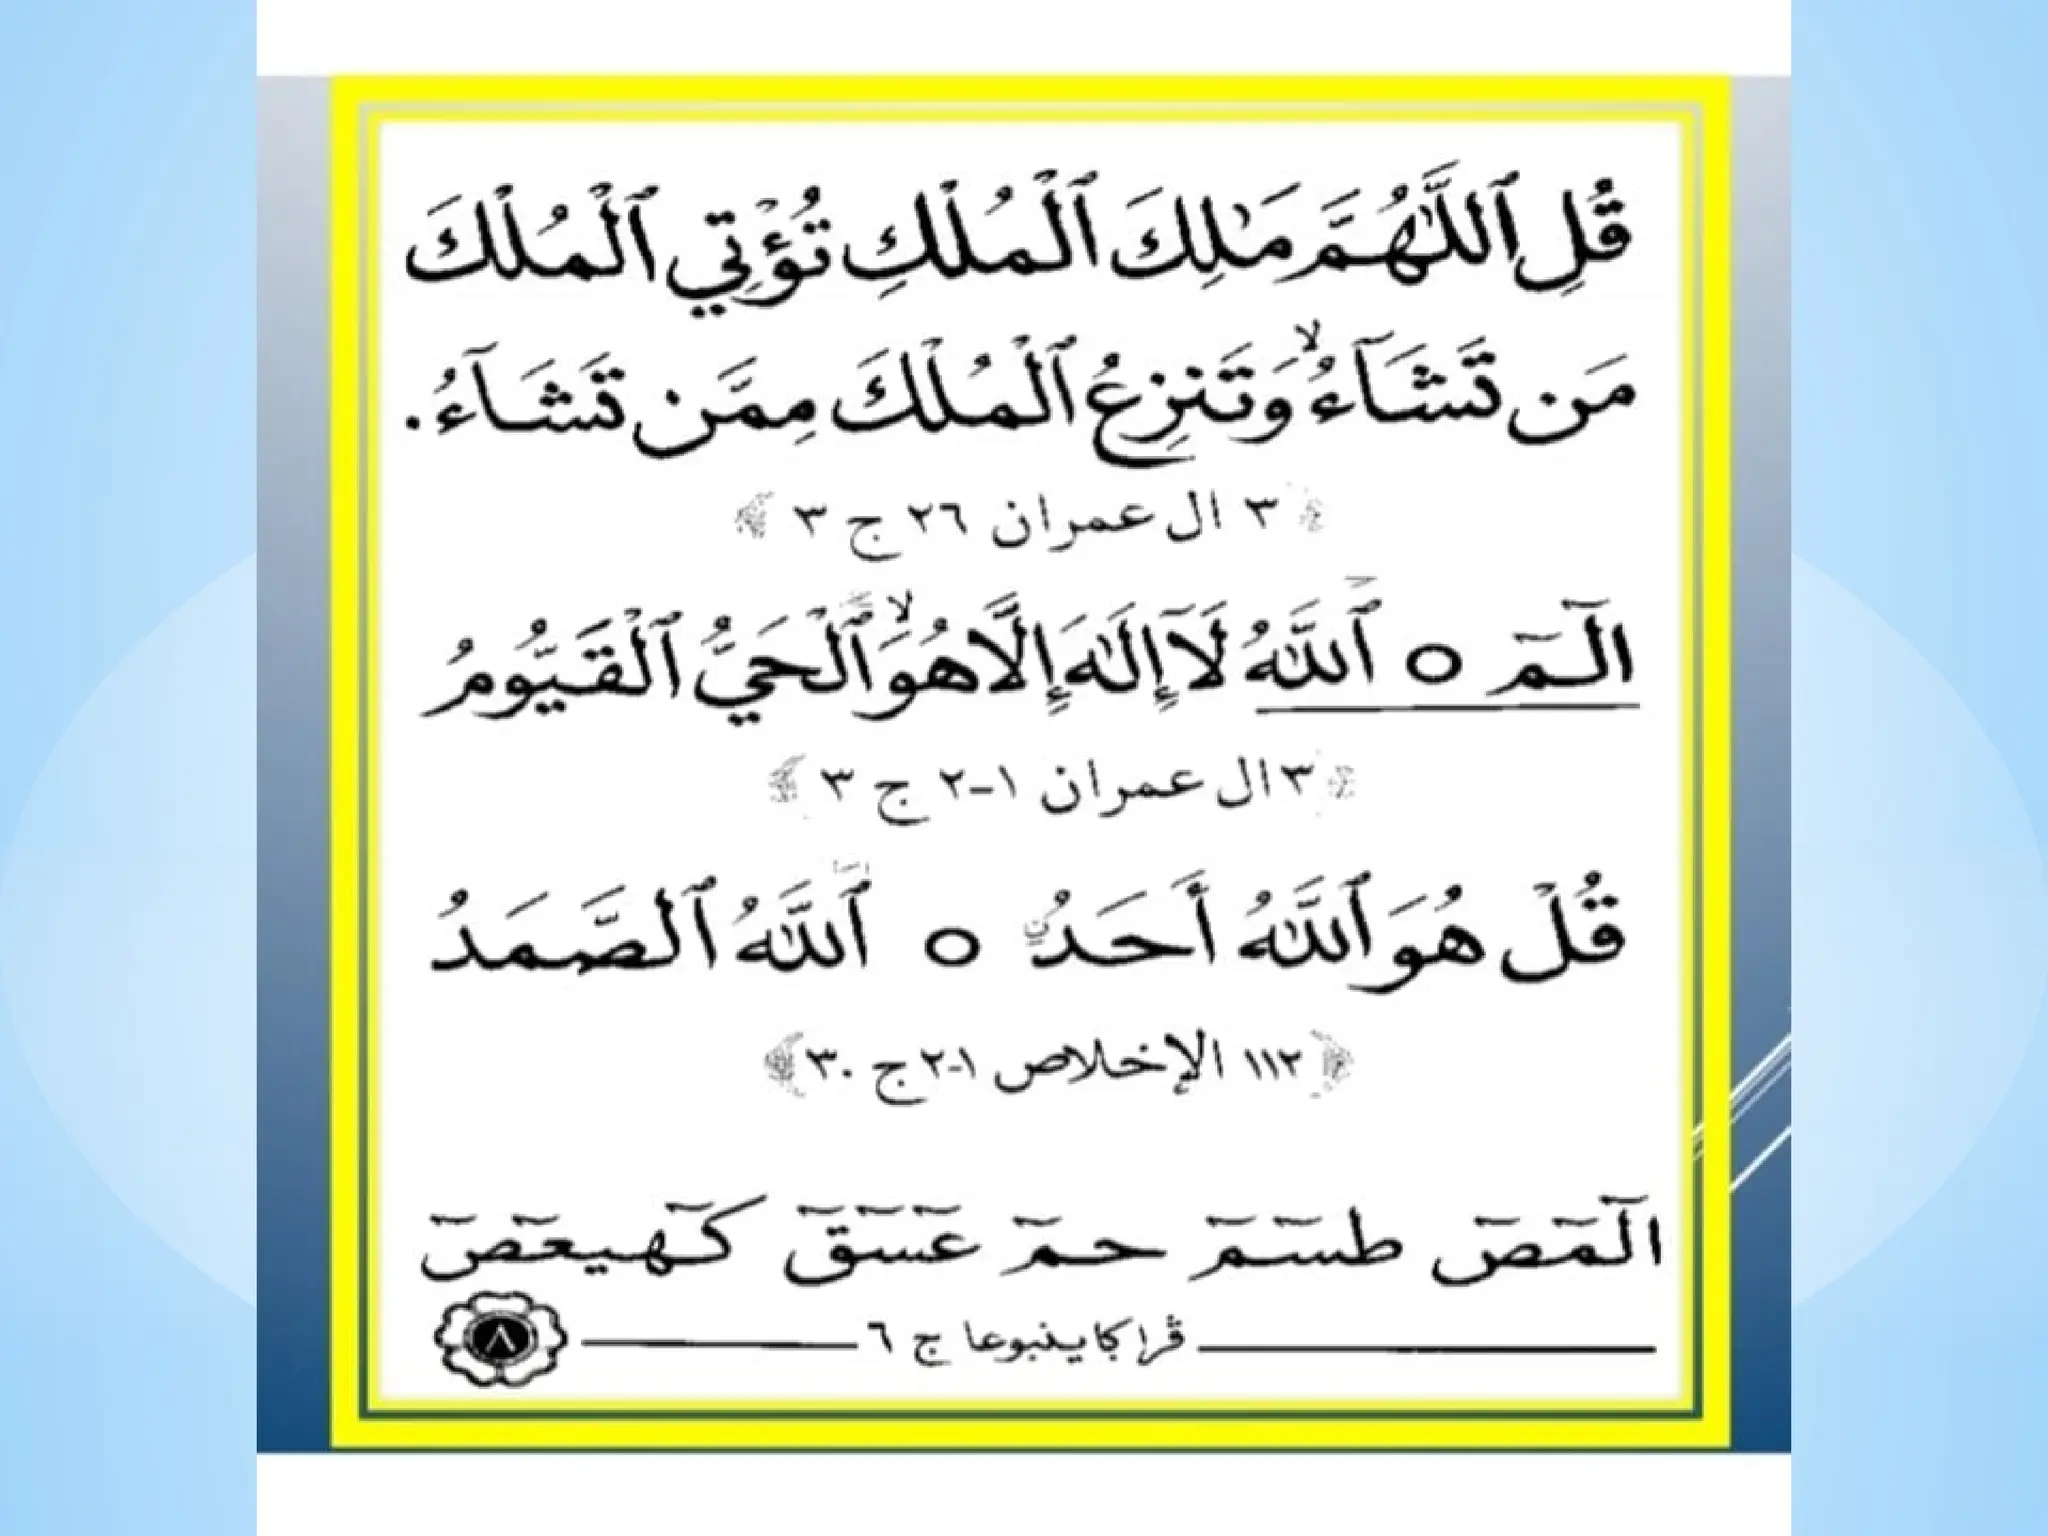 قُلِ ٱللَّهُمَّ مَٰلِكَ ٱلْمُلْكِ تُؤْتِي ٱلْمُلْكَ
مَن تَشَآءُ ۙ وَتَنزِعُ ٱلْمُلْكَ مِمَّن تَشَآءُ.
﴿٣ ال عمران ٢٦ ج ٣﴾
الٓـمٓ ٥ ٱللَّهُ لَآ إِلَٰهَ إِلَّا هُوَ ۙ ٱلْحَيُّ ٱلْقَيُّومُ
﴿٣ ال عمران ١-٢ ج ٣﴾
قُلْ هُوَ ٱللَّهُ أَحَدٌ ٥ ٱللَّهُ ٱلصَّمَدُ
﴿١١٢ الإخلاص ١-٢ ج ٣٠﴾
الٓمٓصٓ طسٓمٓ حمٓ عٓسٓقٓ كٓهيعٓصٓ
ڤراكاينبوعا ج ٦
٨